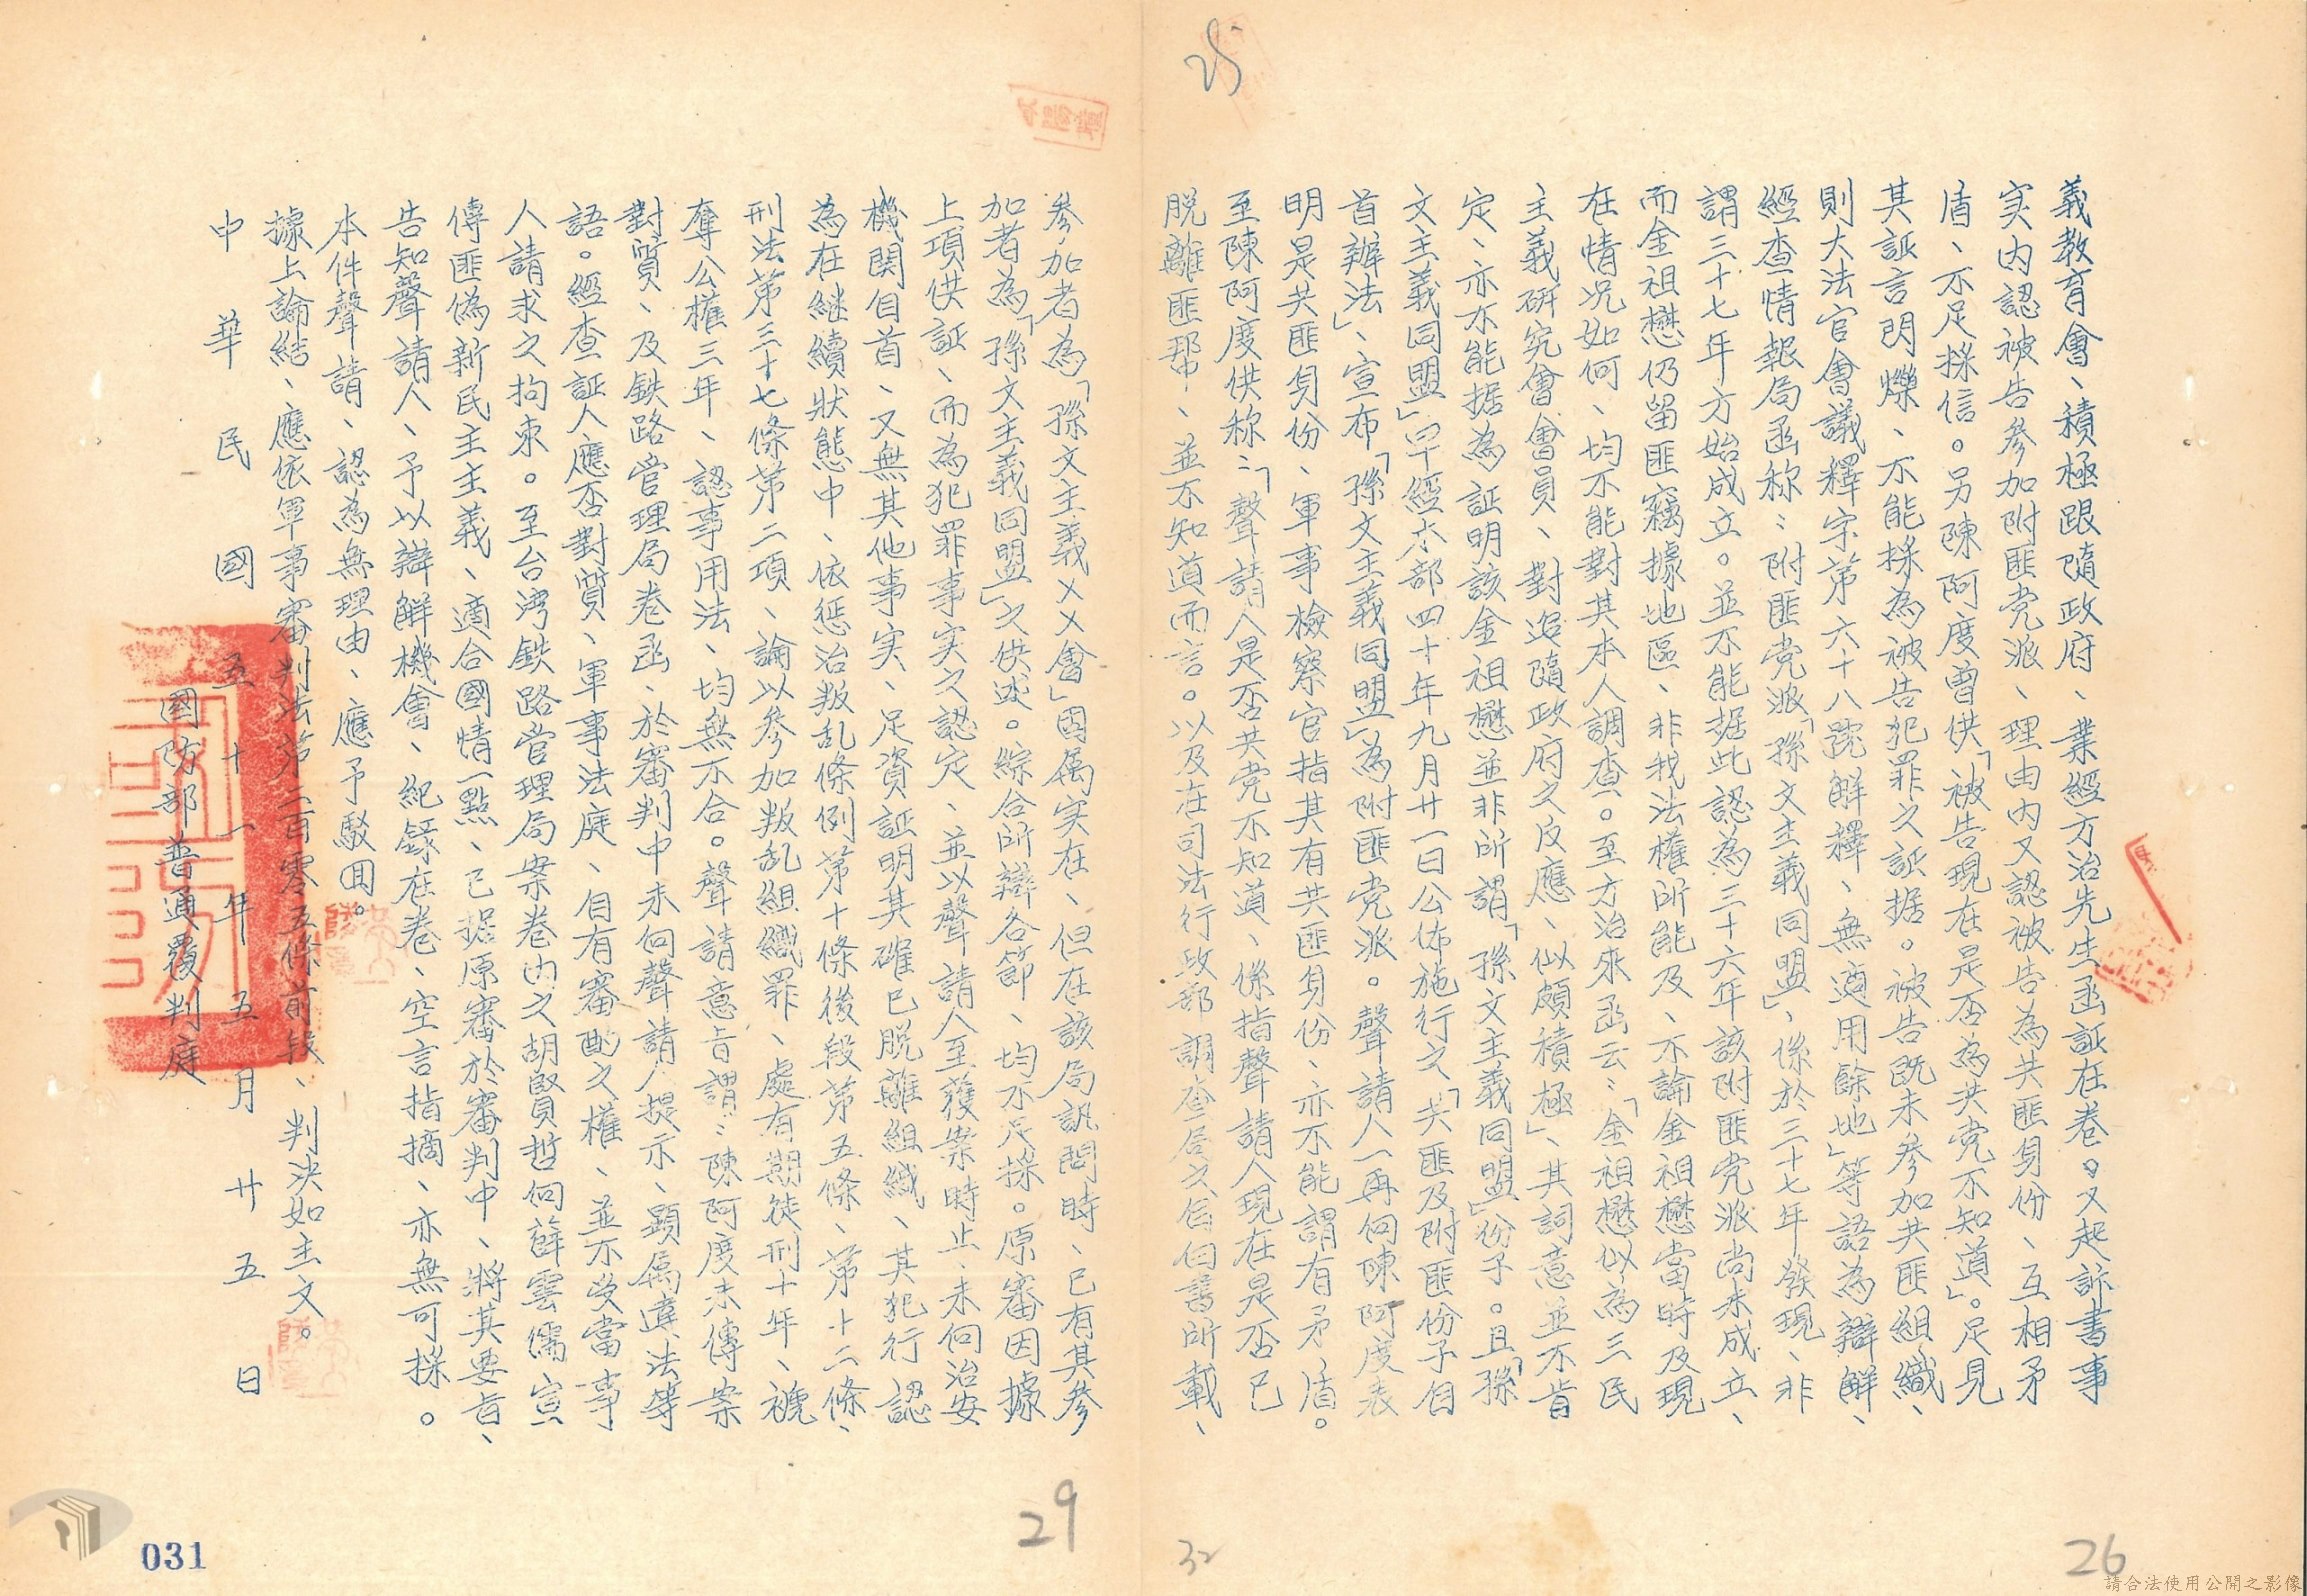 25
義教育會、積極跟隨政府、業經方治先生函証在卷。又起訴書事
实内認被告參加附匪党派、理由内又認被告為共匪身份、互相矛
盾、不足採信。另陳阿度曾供「被告現在是否為共党不知道」。足見
其証言閃爍、不能採為被告犯罪之証据。被告既未參加共匪組織、
則大法官會議釋字第六十八號解釋、無適用餘地」等語為辯解、
經查情報局函称：附匪党派「孫文主義同盟」、係於三十七年發現、非
謂三十七年方始成立。並不能据此認為三十六年該附匪党派尚未成立、
而金祖懋仍留匪竊據地區、非我法權所能及、不論金祖懋當時及現
在情况如何、均不能對其本人調查。至方治來函云：「金祖懋似為三民
主義研究會會員、對追隨政府之反應、似頗積極」、其詞意並不肯
定、亦不能据為証明該金祖懋並非所謂「孫文主義同盟」份子。且「孫
文主義同盟」早經本部四十年九月廿一日公佈施行之「共匪及附匪份子自
首辦法」、宣布「孫文主義同盟」為附匪党派。聲請人一再向陳阿度表
明是共匪身份、軍事檢察官指其有共匪身份、亦不能謂有矛盾。
至陳阿度供称：「聲請人是否共党不知道、係指聲請人現在是否已
脱離匪帮、並不知道而言。以及在司法行政部調查局之自白書所載、
參加者為「孫文主義××會」固属实在、但在該局訊問時、已有其參
加者為「孫文主義同盟」之供述。綜合所辯各節、均不足採。原審因據
上項供証、而為犯罪事实之認定、並以聲請人至獲案時止、未向治安
機関自首、又無其他事实、足資証明其確已脱離組織、其犯行認
為在継續狀態中、依惩治叛乱條例第十條後段第五條、第十二條、
刑法第三十七條第二項、論以參加叛乱組織罪、處有期徒刑十年、褫
奪公權三年、認事用法、均無不合。聲請意旨謂：陳阿度未傳案
對質、及鉄路管理局卷函、於審判中未向聲請人提示、顕属違法等
語。經查証人應否對質、軍事法庭、自有審酌之權、並不受當事
人請求之拘束。至台湾鉄路管理局案卷内之胡賢哲向薛雲儒宣
傳匪偽新民主主義、適合國情一點、已据原審於審判中、將其要旨、
告知聲請人、予以辯解機會、紀錄在卷、空言指摘、亦無可採。
本件聲請、認為無理由、應予駁回。
據上論結、應依軍事審判法第二百零五條前段、判決如主文。
中華民國五十一年五月廿五日
國防部普通覆判庭
29
32
26
031
請合法使用公開之影像